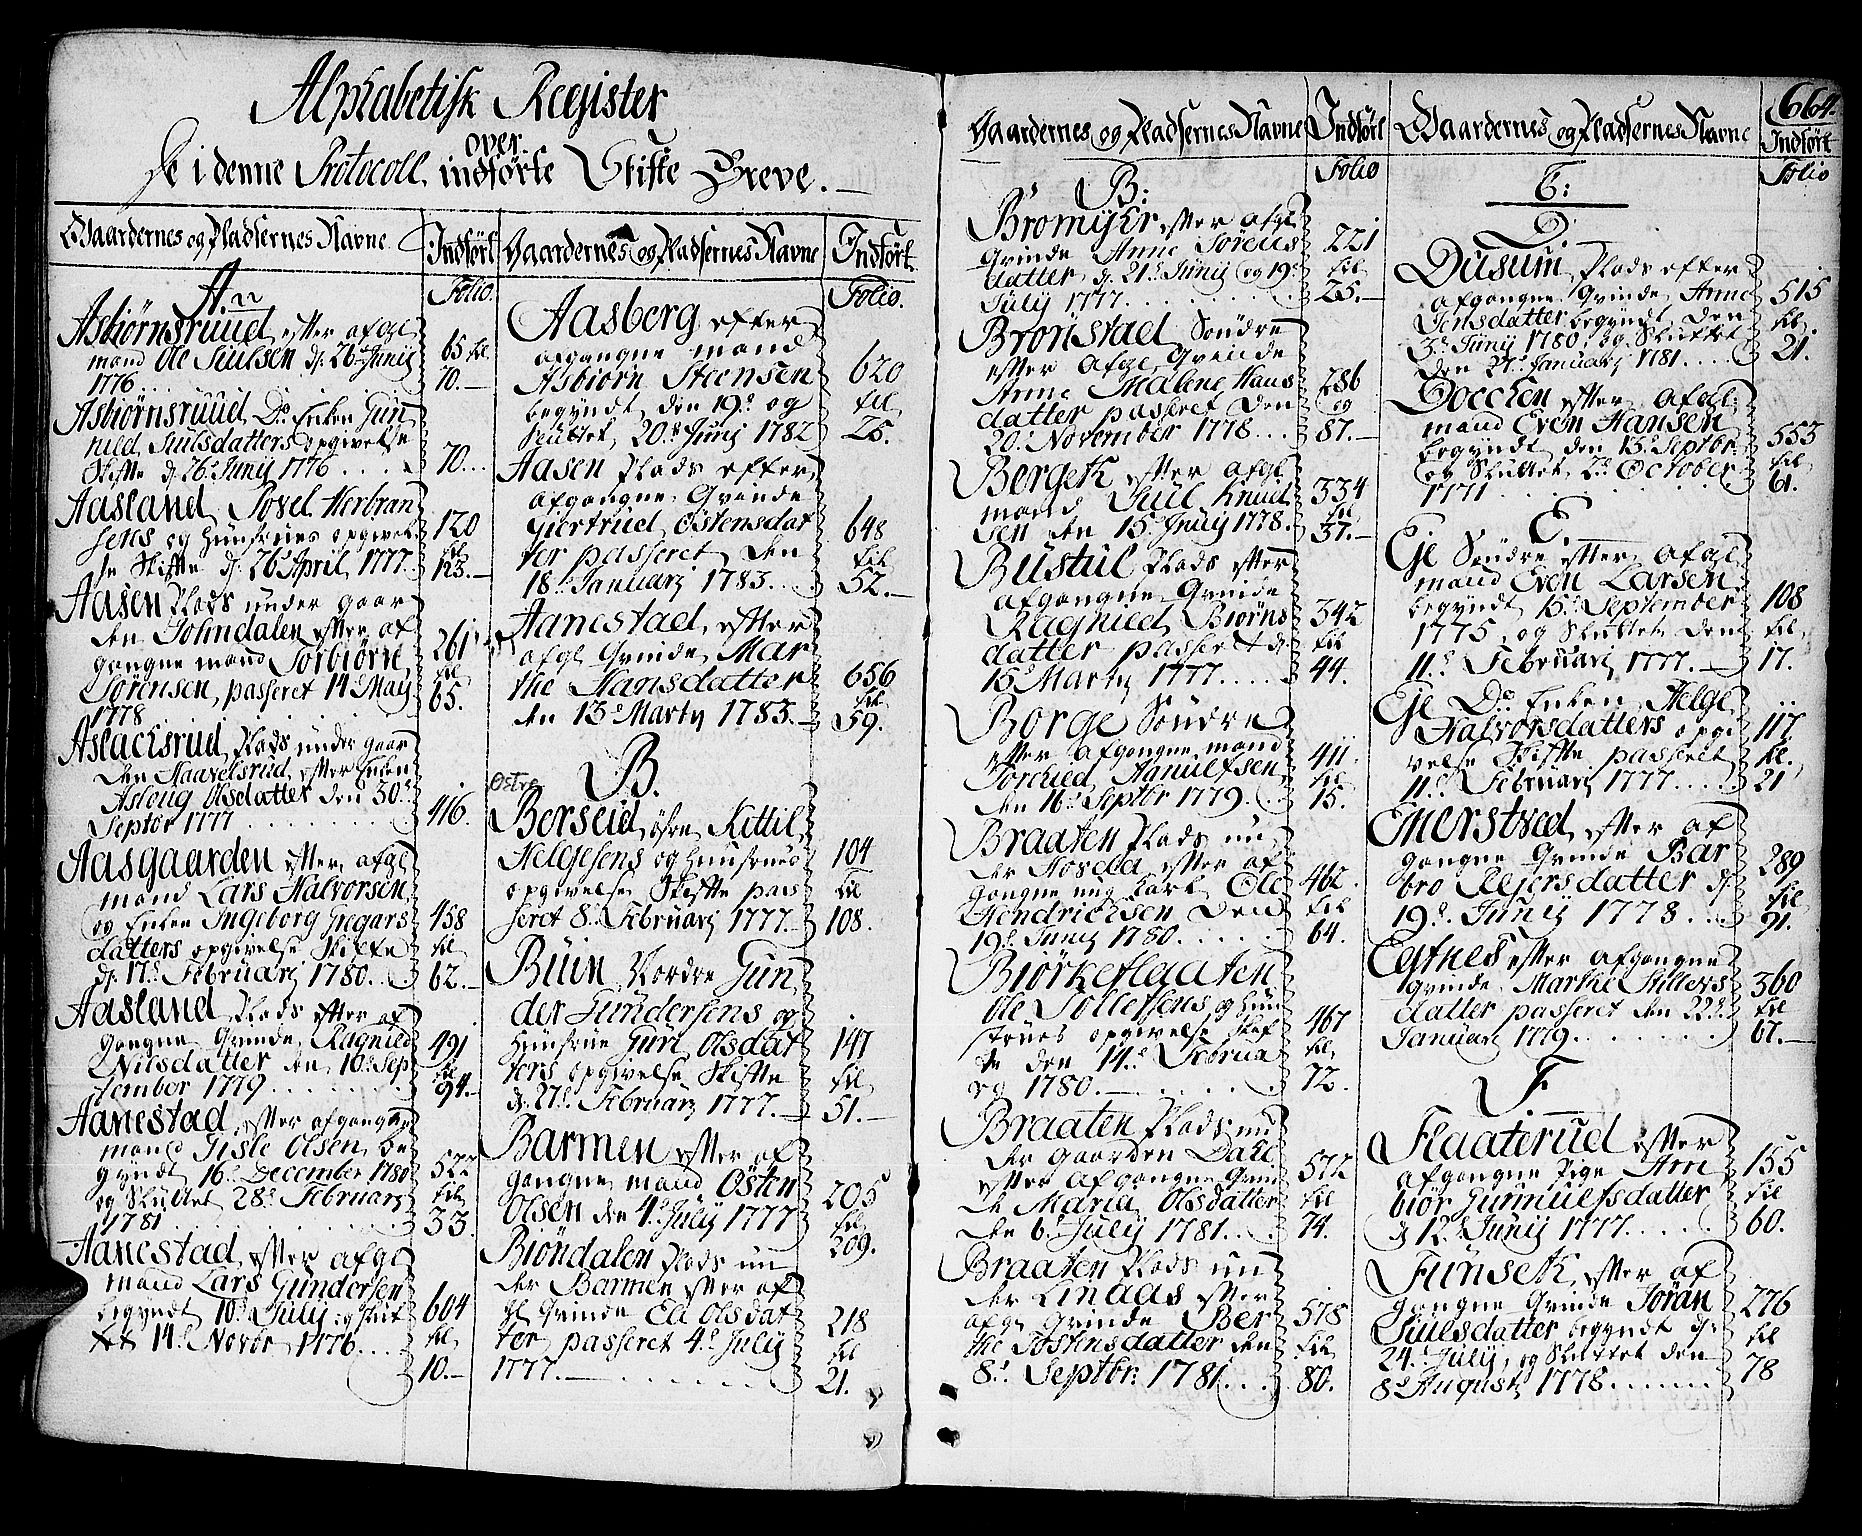 Alphabetisk Register
over
De i denne Protocoll indførte Skifte Breve.
Gaardernes og Pladsernes Navne
Indført
Folio.
A
Asbiørnsruud, efter afgl
mand Ole Juulsen d. 26 Junij
1776
65 til
70.
Asbiørnsruud, Do Enken Gun
hild Juulsdatters opgivelse
Skifte d. 26 Junij 1776
70.
Aasland, Povel Herbran
sens og Hunstrues opgivel
se Skifte d. 26 April 1777
120
til
123.
Aasen Plads under gaar
denHolmdalen efter af
gangne mand Torbiørn
Sørensen, passeret 14 May
1778
261
til
65.
Aslachsrud, Plads under gaar
den Haavelsrud, efter Enken
Asloug Olsdatter den 30
Septbr 1777
416.
Aasgaarden efter afgl
mand Lars Halvorsen,
og Enken Ingeborg Gregars
datters opgivelse Skifte
d. 17 Februarij 1780
458
til
62.
Aasland Plads efter af
gangne Qvinde Ragnild
Nilsdatter den 10 Sep
tember 1779
491
til
94.
Aanestad, efter afgangne
mand Gisle Olsen, be
gyndt 16 December 1780
og Sluttet 28 Februarij
1781
522
til
33.
Aanestad, efter afgl
mand Lars Gundersen
begyndt 10 July og slut
tet 14 Novbr 1776
604
til
10.
Gaardernes og Pladsernes Navne
Indført
Folio.
Aasberg efter
afgangne mand
Asbiørn Steensen
begyndt den 19 og
sluttet, 20 Junij 1782
620
til
25.
Aasen Plads efter
afgangne Qvinde
Giertrud Østensdat
ter passeret den
18 Januarij 1783
648
til
52.
Aanestad, efter
afgl Qvinde, Mar
the Hansdatter
den 13 Martij 1783.
656
til
59.
B.
Østre
Berseid, øfre, Kittil
Helgesens og Hunstrues
opgivelse Skifte pas
seret 8 Februarij 1777.
104
til
108.
Buin Nordre Gun
der Gundersens og
Hunstrue Guri Olsdat
ters opgivelse Skifte
d. 27 Februarij 1777.
147
til
51.
Barmen efter af
gangne mand Østen
Olsen den 4 July 1777
205
til
209.
Biøndalen Plads un
der Barmen efter af
gl Qvinde Eli Olsdat
ter, passeret 4 July
1777.
218
til
21.
Gaardernes og Pladsernes Navne
Indført
Folio
B:
Bromyhr efter afgl
Qvinde Anne Sørens
datter d. 21 Junij og 19
July 1777
221
til
25.
Bronstad Søndre
efter afgl Qvinde
Anne Malene Hans
datter passeret den
20 November 1778
286
og
87.
Bergeth efter afgl
mand Juul Knud
sen den 15 Junij 1778.
334
til
37.
Bustul Plads efter
afgangne Qvinde
Ragnild Biørns
datter passeret d.
15 Martij 1777
342
til
44.
Borge Søndre
efter afgangne mand
Torkild Aanulfsen
den 16 Septbr 1779.
411
til
15.
Braaten Plads un
der Hovda efter af
gangne ung Karl Ole
Hendrichsen den
19 Junij 1780
462
til
64.
Biørkeflaaten
Ole Tollefsens og Hun
strues opgivelse Skif
te den 14 Februa
rij 1780.
467
til
72.
Braaten Plads un
der Gaarden Dahl
efter afgangne Qvin
de Maria Olsdatter
den 6 July 1781
572
til
74.
Braaten Plads un
der Linaas efter
afgl Qvinde Ber
the Tostensdatter den
8 Septbr: 1781
578
til
80.
Gaardernes og Pladsernes Navne
664.
Indført
Folio
C:
D
Dusum Plads efter
afgangne Qvinde Anne
Jensdatter begyndt den
3 Junij 1780 og Sluttet
den 27 Januarij 1781.
515
til
21.
Docchen efter afgl
mand Even Hansen
begyndt den 13 Septbr
og Sluttet 2 October
1771
553
til
61.
E.
Eje Søndre efter afgl
mand Even Larsen
begyndt 15 September
1775, og Sluttet den
11 Februarij 1777.
108
til
17.
Eje Do Enken Helge
Halvorsdatters opgi
velse Skifte passeret
11 Februarij 1777
117.
til.
21
Enerstved, efter af
gangne Qvinde Bar
bro Rejersdatter d.
19 Junij 1778
289
til
91.
Egthes efter afgangne
Qvinde, Marthe
datter passeret den 22
Januarij 1779
360
til
67.
F.
Flaaterud efter
afgangne Pige Arn
biør Gunnulfsdatter
d 12 Junij 1777.
155
til
60.
Funseth, efter af
gangne Qvinde Jøran
Juulsdatter begyndt d.
24 July, og Sluttet den
8 Augusti 1778
276
til
78